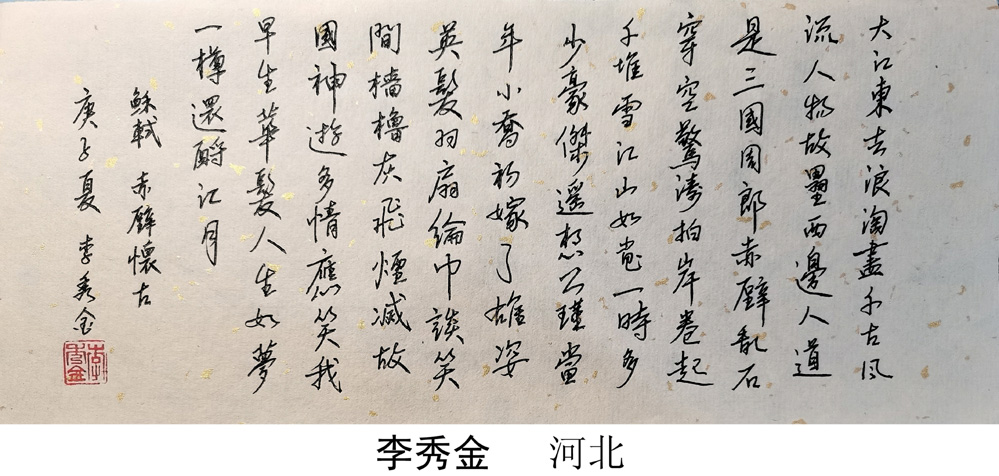 大江東去浪淘盡千古風
流人物故壘西邊人道
是三國周郎赤壁亂石
穿空驚濤拍岸卷起
千堆雪江山如畫一時多
少豪傑遥想公瑾當
年小喬初嫁了雄姿
英髮羽扇綸巾談笑
間檣櫓灰飛煙滅故
國神遊多情應笑我
早生華髮人生如夢
一樽還酹江月
穌軾 赤壁懷古
庚子夏 李秀金
李秀金 河北